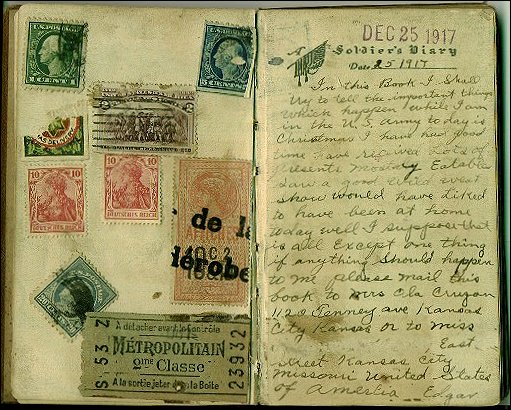 U.S. POSTAGE
1 CENT 1
10
10
DEUTSCHES REICH
DEUTSCHES REICH
de la
10C2
dérobe
A détacher avant le Contrôle
MÉTROPOLITAIN
2me Classe
A la sortie jeter dans la Boîte
S 53 Z
23932
DEC 25 1917
A Soldier's Diary
Date 25 1917
In this Book I Shall
try to tell the important things
which happen while I am
in the U.S. Army to day is
Christmas I have had good
time have received lots of
presents mostly Eatables
saw a good
show would have liked
to have been at home
today well I suppose that
is all Except one thing
if anything should happen
to me please mail this
book to Mrs Ola
Tenney ave Kansas
City Kansas or to miss
East
Street Kansas City
Missouri United States
of America Edgar